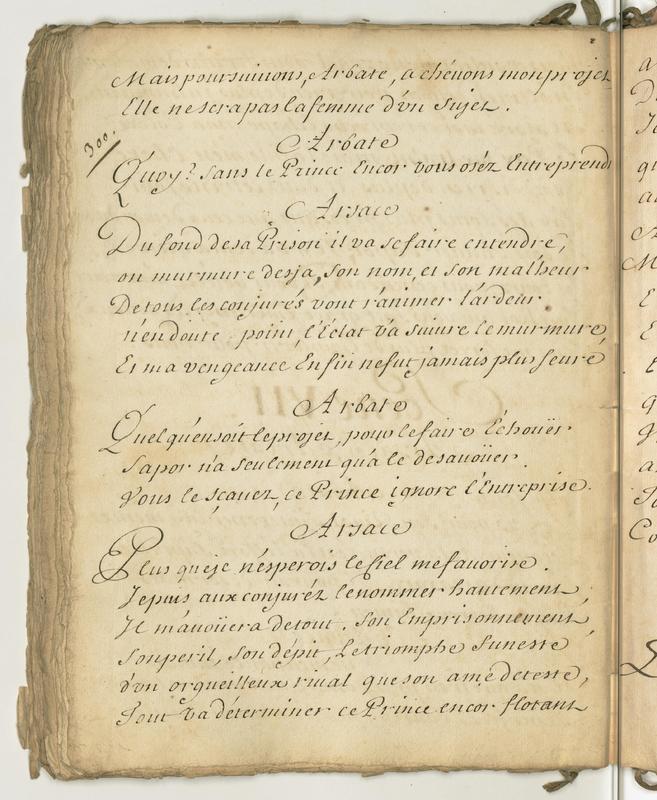 Mais poursuivons, Arbate, achévons mon projet
Elle ne sera pas la femme d'vn Sujet.
Arbate
300.
Quoy? sans le Prince Encor vous oséz Entreprend
Arsace
Du fond de sa Prison il va se faire entendre,
on murmure desja, son nom, et son malheur
De tous les conjurés vont r'animer l'ardeur.
n'en doute point, l'Eclat va suivre le murmure,
Et ma vengeance Enfin ne fut jamais plus seure
Arbate
Quelqu'en soit le projet, pour le faire Echoüer
Sapor n'a seulement qu'a le desavoüer.
Vous le sçavez, ce Prince ignore l'Entreprise.
Arsace
Plus que je n'esperois le Ciel me favorise.
Je puis aux conjuréz le nommer hautement,
Il m'avoüera de tout. Son Emprisonnement,
Son peril, son dépit, Le triomphe funeste
d'vn orgueilleux rival que son ame deteste,
Tout va déterminer ce Prince encor flotant